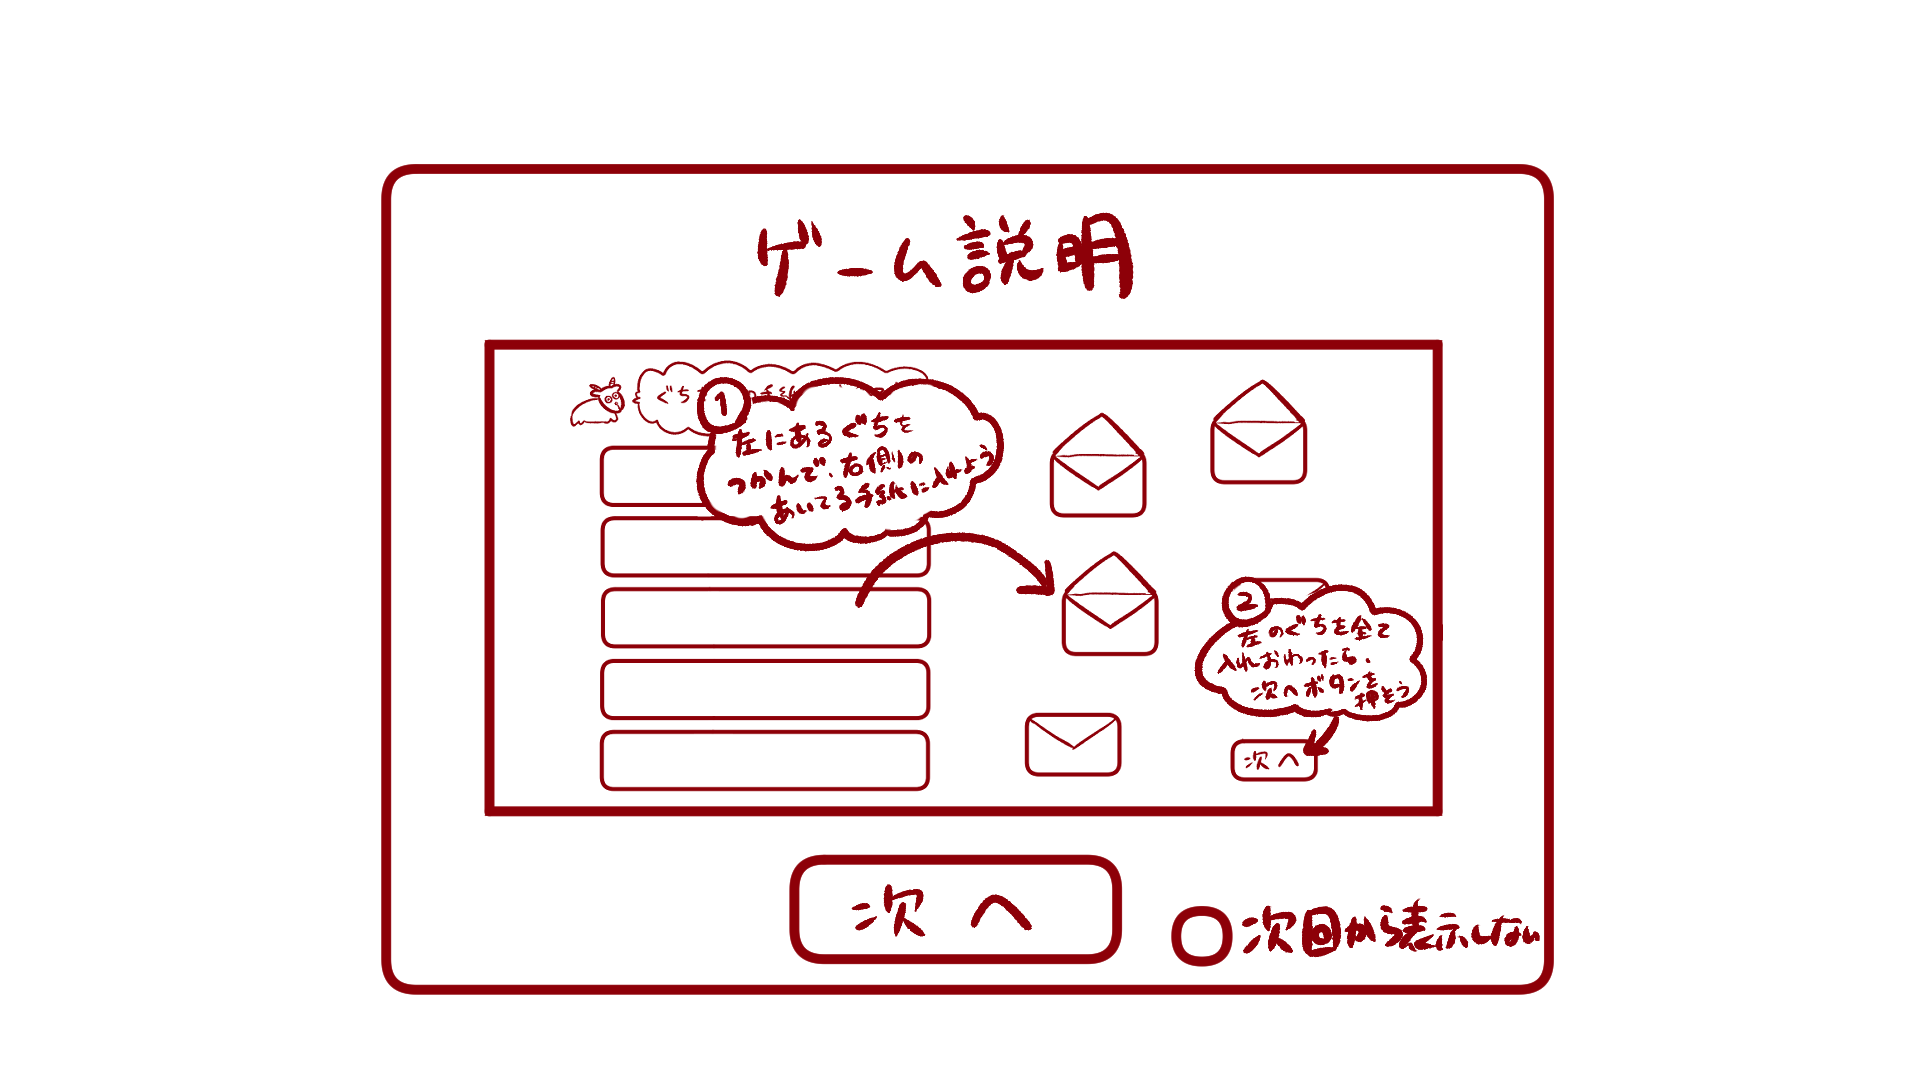 ゲーム説明
ぐち
手紙
1
左にあるぐちを
つかんで、右側の
あいてる手紙に入れよう
2
左のぐちを全て
入れおわったら、
次へボタンを
押そう
次へ
次へ
次回から表示しない